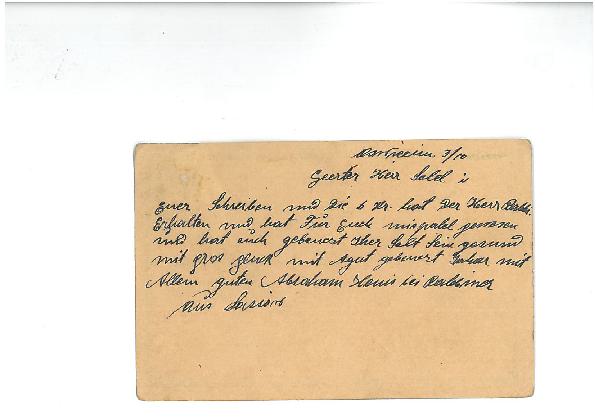 3/10
Geerter Herr Sold i
Euer Schreiben und Die 6 Kr. hat Der Herr
Erhalten und hat Für Euch mispalel gewesen
und hat euch gebencht Iher Solt Sein gesund
mit gros glück mit Agut gebencht Jahr mit
Allem guten Abraham bei
Aus